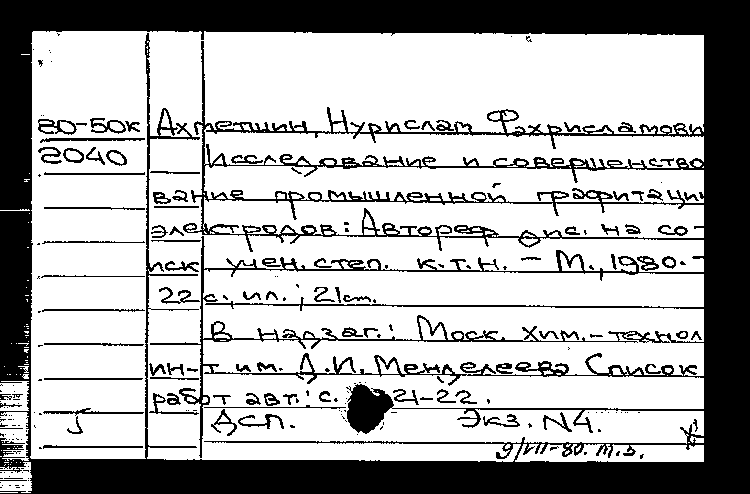 80-50к Ахметшин, Нурислат Фахрисламови
2040 Исследование и совершенство
вание промышленной графитации
электродов: Автореф дис. на со-
иск. учен. степ. к.т.н. - М., 1980. -
22 с., ил.; 21 cm.
В надзаг.: Моск. хим.-технол
ин-т им. Д.И. Менделеева Список
работ авт.: с. 21-22.
ДСП. Экз. N4.
9/VII-80. т.з.